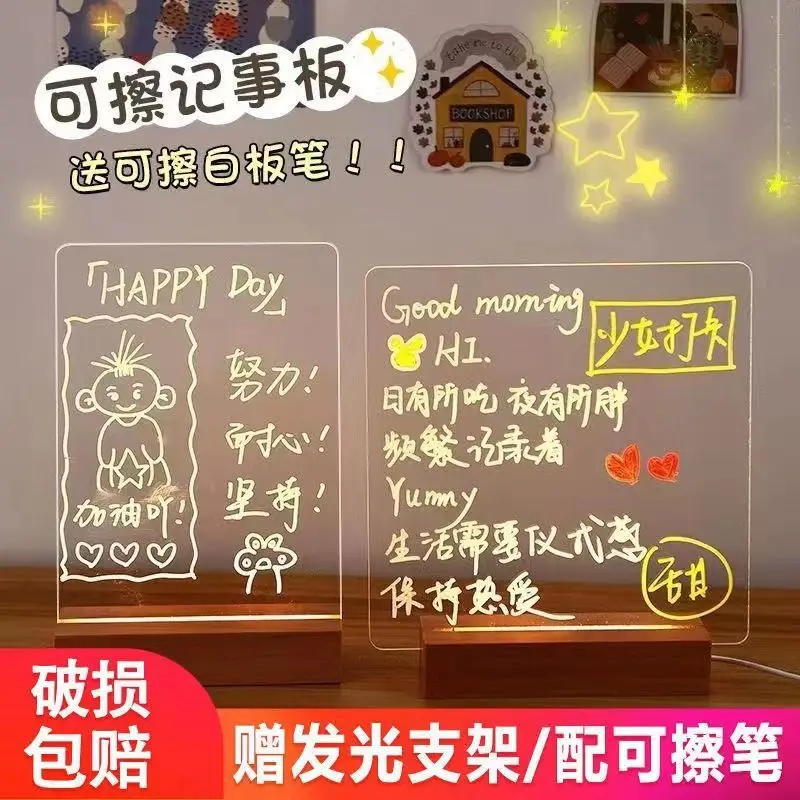 可擦记事板
送可擦白板笔！！
take me to the
BOOKSHOP
「HAPPY Day」
努力！
耐心！
坚持！
加油吖！
Good morning
HI.
少女打卡
日有所吃 夜有所胖
频繁记录着
Yummy
生活需要仪式感
保持热爱
甜
破损
包赔
赠发光支架/配可擦笔